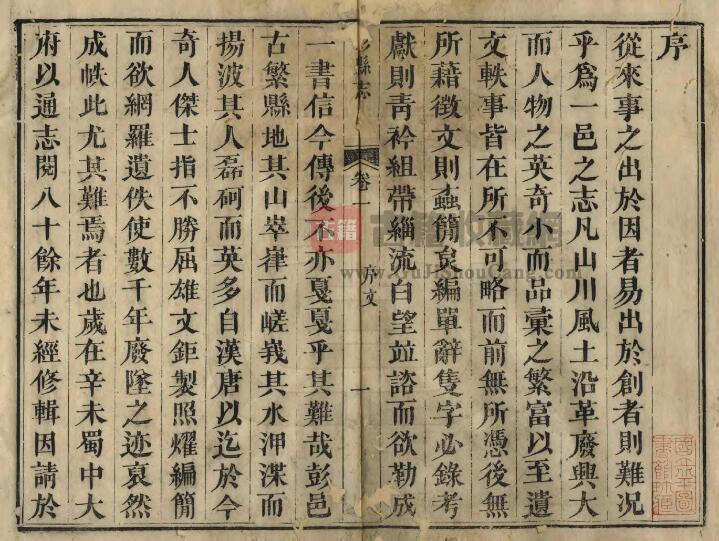 序
從來事之出於因者易出於創者則難況
乎爲一邑之志凡山川風土沿革廢興大
而人物之英奇小而品彙之繁富以至遺
文軼事皆在所不可略而前無所憑後無
所藉徵文則蟲簡裒編單辭隻字必錄考
獻則青衿組帶緇流白望竝諮而欲勒成
縣志
卷一
序文
一
一書信今傳後不亦戛戛乎其難哉彭邑
古繁縣地其山崒嵂而嵯峩其水泙渫而
揚波其人磊砢而英多自漢唐以迄於今
奇人傑士指不勝屈雄文鉅製照燿編簡
而欲網羅遺佚使數千年廢墜之迹裒然
成帙此尤其難焉者也歲在辛未蜀中大
府以通志閱八十餘年未經修輯因請於
古籍
古籍收藏網
www.GuJiShouCang.com